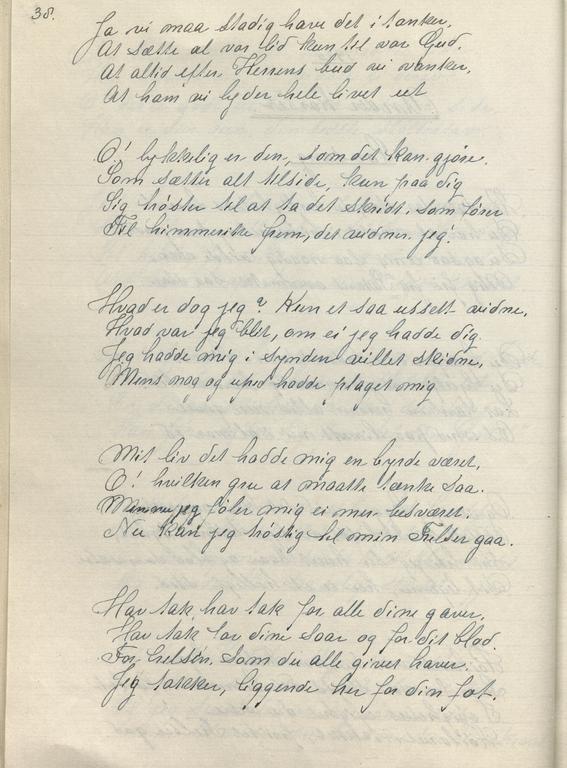 38.
Ja vi maa stadig have det i tanker,
At sætte al vor lid kun til vor Gud.
At altid efter Herrens bud vi vanker,
At ham vi lyder hele livet ut

O! lykkelig er den, som det kan gjøre.
Som sætter alt tilside, kun paa dig
Sig trøster til at ta det skridt, som fører
Til himmerike frem, det vidner jeg!

Hvad er dog jeg? Kun et saa usselt vidne,
Hvad var jeg blet, om ei jeg hadde dig.
Jeg hadde mig i synden
Mens nag og uped hadde plaget mig

Mit liv det hadde mig en byrde været,
O! hvilken gru at maatte tænke saa.
Men nu jeg føler mig ei mer besværet.
Nu kan jeg trøstig til min Frelser gaa.

Hav tak, hav tak for alle dine gaver,
Hav tak for dine saar og for dit blod.
For helsen, som du alle giver haver.
Jeg takker, liggende her for din fot.